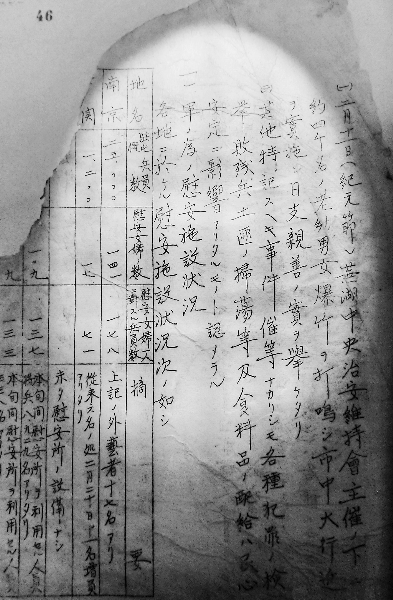 46
(三)二月十一日(紀元節)蕪湖中央治安維持會主催ノ下ニ
約四千名ノ老幼男女爆竹ヲ打鳴シ市中大行進
ヲ實施シ日支親善ノ實ヲ擧ケタリ
四其他特ニ記スヘキ事件催等ナカリシモ各種犯罪ノ檢
擧、敗殘兵土匪ノ掃蕩等及食料品ノ配給ハ民心
安定ニ影響アリタルモノト認メラル
一一軍ノ爲ノ慰安施設狀況
各地ニ於ケル慰安施設狀況次ノ如シ
地名
駐屯兵員
慰安婦數
慰安婦女一人
ニ對スル兵員數
摘要
南京
二五〇〇〇
一四一
一七八
上記ノ外藝者十七名アリ
一二〇〇
一七
七一
從來六名ノ処二月二十日十一名增員
アリタリ
未タ慰安所ノ設備ナシ
九
一三七
本旬間慰安所ヲ利用セル人員
將兵八九二九名アリタリ
九
一三三
本旬間慰安所ヲ利用セル人員